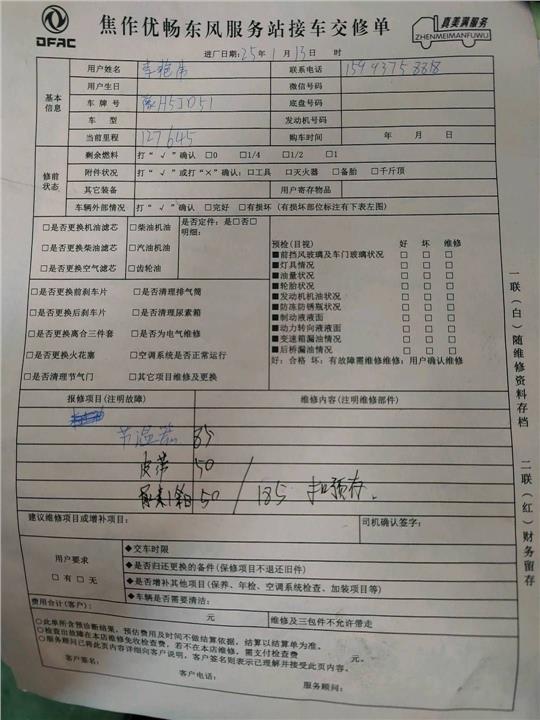 DFAC
焦作优畅东风服务站接车交修单
真美满服务
ZHENMEIMANFUWU
进厂日期:25年1月13日 时
基本信息
用户姓名 联系电话
用户生日 微信号码
车牌号 豫H5JD51 底盘号码
车型 发动机号码
当前里程 127645 购车时间 年 月 日
修前状态
剩余燃料 打“√”确认 □0 □1/4 □1/2 □1
附件状况 打“√”或打“×”确认:□工具 □灭火器 □备胎 □千斤顶
其它装备 用户寄存物品
车辆外部情况 打“√”确认 □完好 □有损坏 (有损坏部位标注有下表左图)
□是否更换机油滤芯 □柴油机油 是否定件:是□否□
明细:
□是否更换柴油滤芯 □汽油机油
□是否更换空气滤芯 □齿轮油
□是否更换前刹车片 □是否清理排气筒
□是否更换后刹车片 □是否清理尿素箱
□是否更换离合三件套 □是否为电气维修
□是否更换火花塞 □空调系统是否正常运行
□是否清理节气门 □其它项目维修及更换
预检(目视) 好 坏 维修
■前挡风玻璃及车门玻璃状况 □ □ □
■灯具情况 □ □ □
■油量状况 □ □ □
■轮胎状况 □ □ □
■发动机机油状况 □ □ □
■防冻防锈瓶状况 □ □ □
■制动液液面 □ □ □
■动力转向液液面 □ □ □
■变速箱漏油情况 □ □ □
■后桥漏油情况 □ □ □
好:合格 坏:有故障需维修维修:用户确认维修
报修项目(注明故障) 维修内容(注明维修部件)
节温器 85
皮带 50
50 / 185 扣预存.
建议维修项目或增补项目: 司机确认签字:
用户要求
□有 □无
◆交车时限
◆是否归还更换的备件(保修项目不退还旧件)
◆是否增补其他项目(保养、年检、空调系统检查、加装项目等)
◆车辆是否需要清洁:
费用合计(客户): 元 维修及三包件不允许带走
○此单所含预诊断结果,预估费用及时间不做结算依据,结算以结算单为准。
○检查出故障在本店维修免收检查费,若不在本店维修,需支付检查费 元。
○服务顾问已将此页内容详细向客户说明,客户签名则表示已理解并接受此页内容。
客户签名: 客户电话: 服务顾问:
一联(白)随维修资料存档
二联(红)财务留存